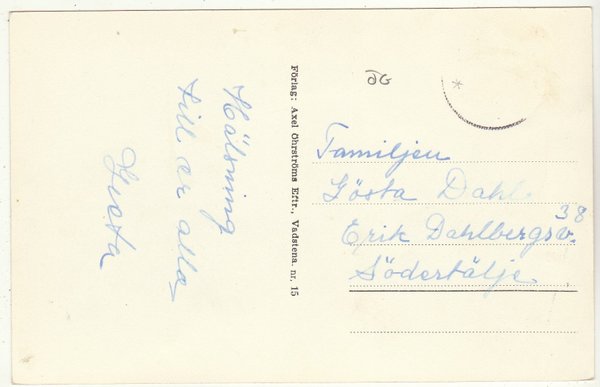 Hälsning
till er alla
Greta
Förlag: Axel Öhrströms Eftr., Vadstena. nr. 15
Familjen
Gösta Dahl
Erik Dahlbergsv. 38
Södertälje